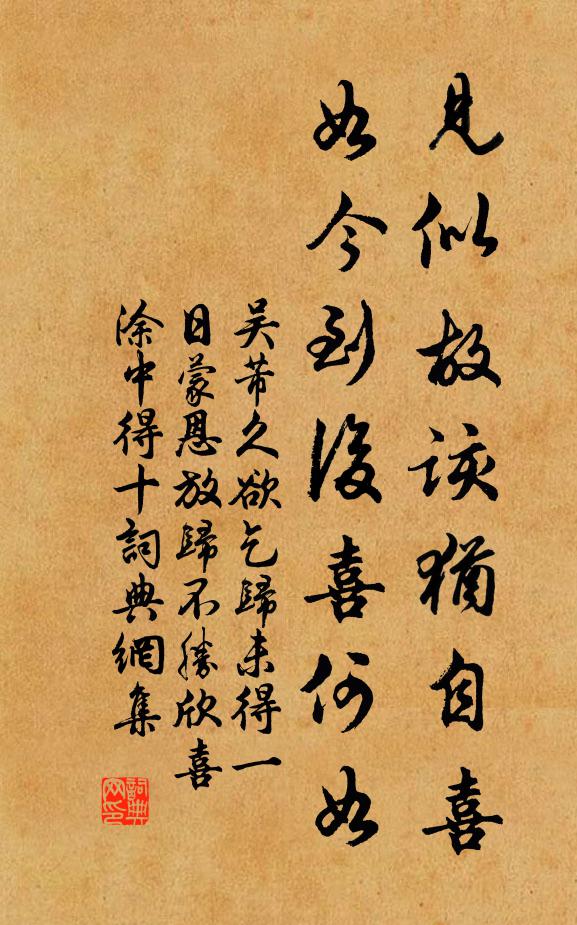 見似故該猶自喜
如今到後喜何如
吳芾久欲乞歸未得一
日蒙恩放歸不勝欣喜
涂中得十詞典網集
詞典网印